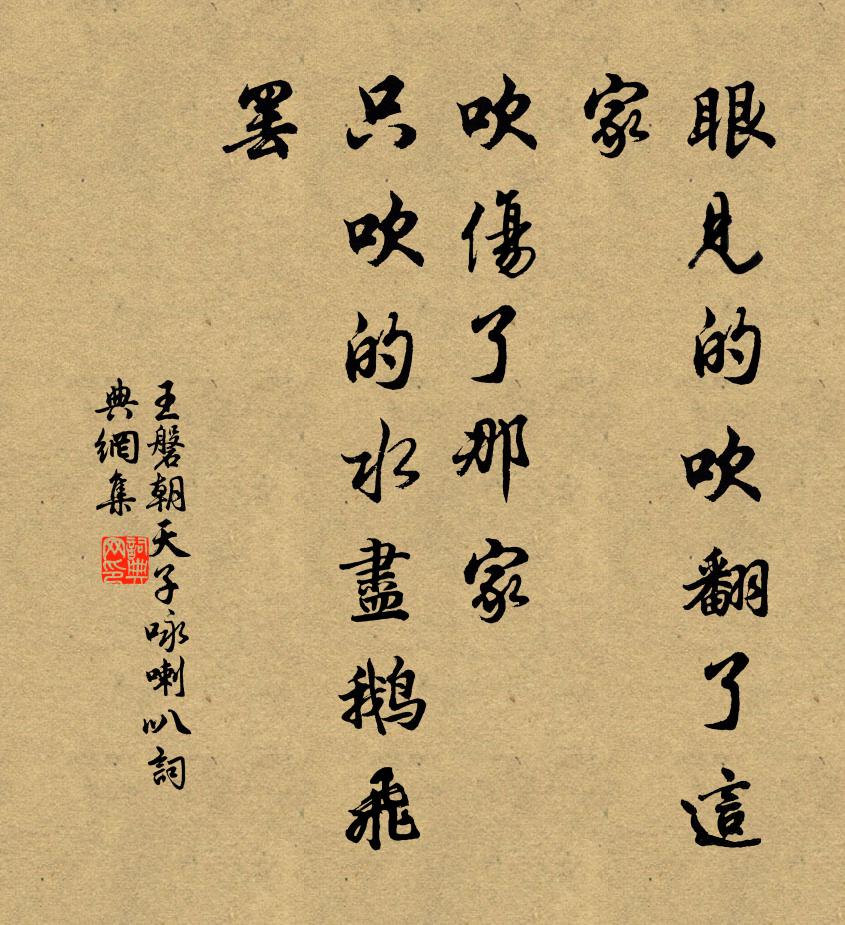 眼見的吹翻了這
家
吹傷了那家
只吹的水盡鵝飛
罷
王磐朝天子咏喇叭詞
典網集
詞典
网印